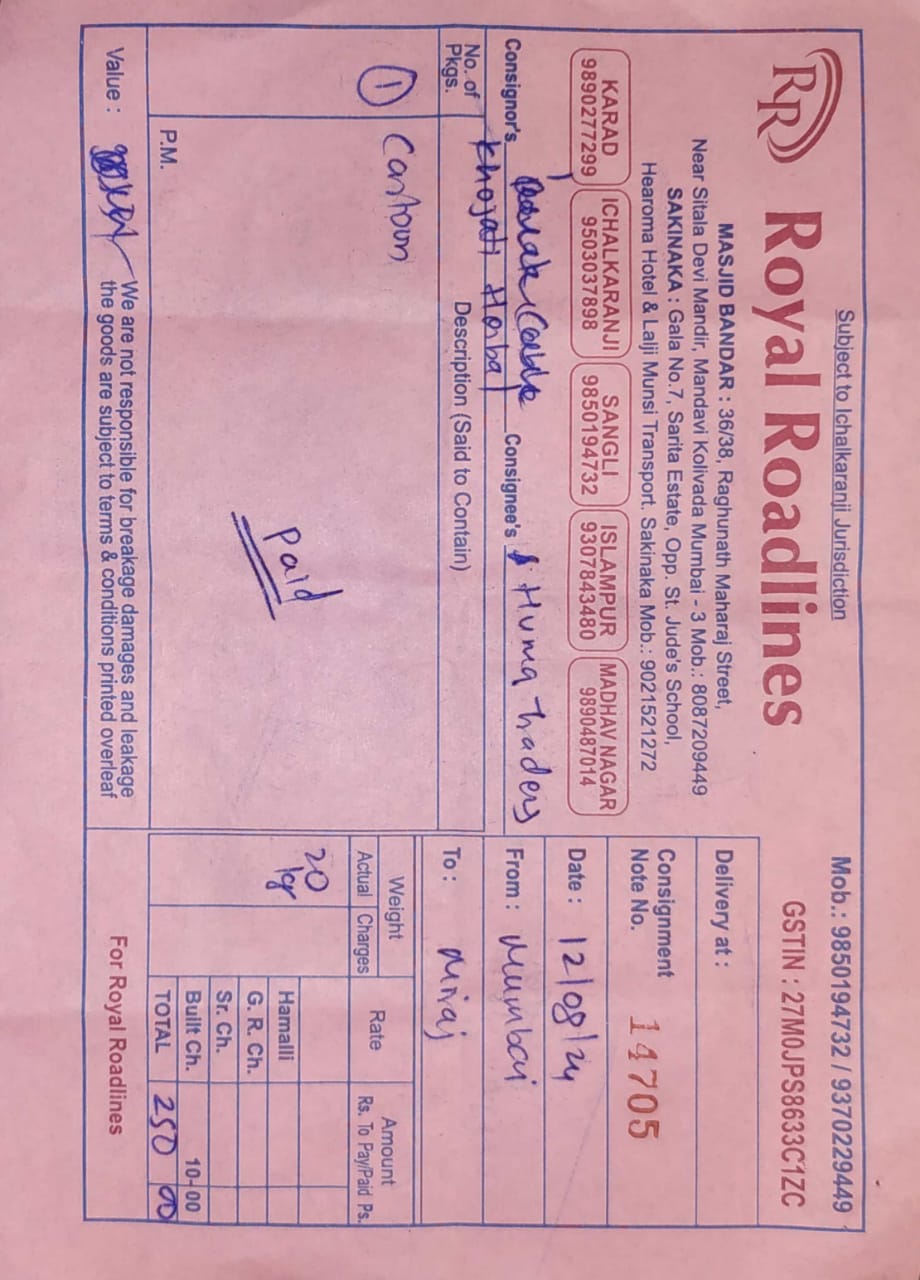 Subject to Ichalkaranji Jurisdiction
Mob.: 9850194732 / 9370229449
RR Royal Roadlines
GSTIN : 27M0JPS8633C1ZC
MASJID BANDAR : 36/38, Raghunath Maharaj Street,
Near Sitala Devi Mandir, Mandavi Kolivada Mumbai - 3 Mob.: 8087209449
SAKINAKA : Gala No.7, Sarita Estate, Opp. St. Jude's School,
Hearoma Hotel & Lalji Munsi Transport, Sakinaka Mob.: 9021521272
KARAD 9890277299
ICHALKARANJI 9503037898
SANGLI 9850194732
ISLAMPUR 9307843480
MADHAV NAGAR 9890487014
Delivery at :
Consignment Note No. 14705
Date : 12/08/24
From : Mumbai
To : Miraj
Consignor's
Khojati Horbal
Consignee's Huma traders
No. of Pkgs.
Description (Said to Contain)
Weight
Actual
Charges
Rate
Amount
Rs. To Pay/Paid Ps.
① Cartoun
20 kg
Paid
Hamalli
G. R. Ch.
Sr. Ch.
Built Ch. 10-00
TOTAL 250 00
P.M.
Value :
We are not responsible for breakage damages and leakage
the goods are subject to terms & conditions printed overleaf
For Royal Roadlines